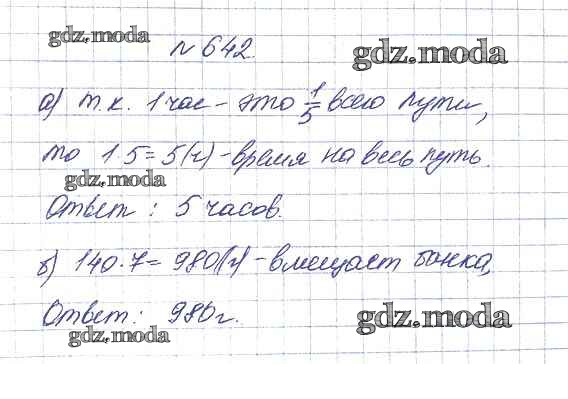 gdz.moda
№ 642.
gdz.moda
а) т.к. 1 час - это 1/5 всего пути,
то 1·5=5(ч) - время на весь путь.
gdz.moda
Ответ: 5 часов.
б) 140·7=980(г) - вмещает банка,
Ответ: 980г.
gdz.moda
gdz.moda